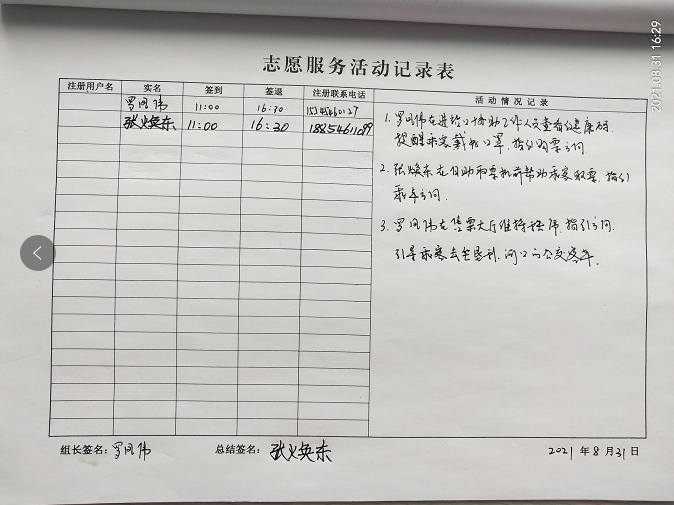 2021.08.31 16:29
志愿服务活动记录表
注册用户名 实名 签到 签退 注册联系电话 活动情况记录
罗凤伟 11:00 16:30
张焕东 11:00 16:30 18854611099
1. 罗凤伟在进站口协助工作人员查看健康码
提醒乘客戴好口罩,指引购票之问.
2. 张焕东在自助取票机前帮助乘客取票,指引
乘车之问.
3. 罗凤伟在售票大厅维持秩序,指引之问.
引导乘客去坐垦利,河口的公交客车.
组长签名: 罗凤伟 总结签名: 张焕东 2021 年 8 月 31 日